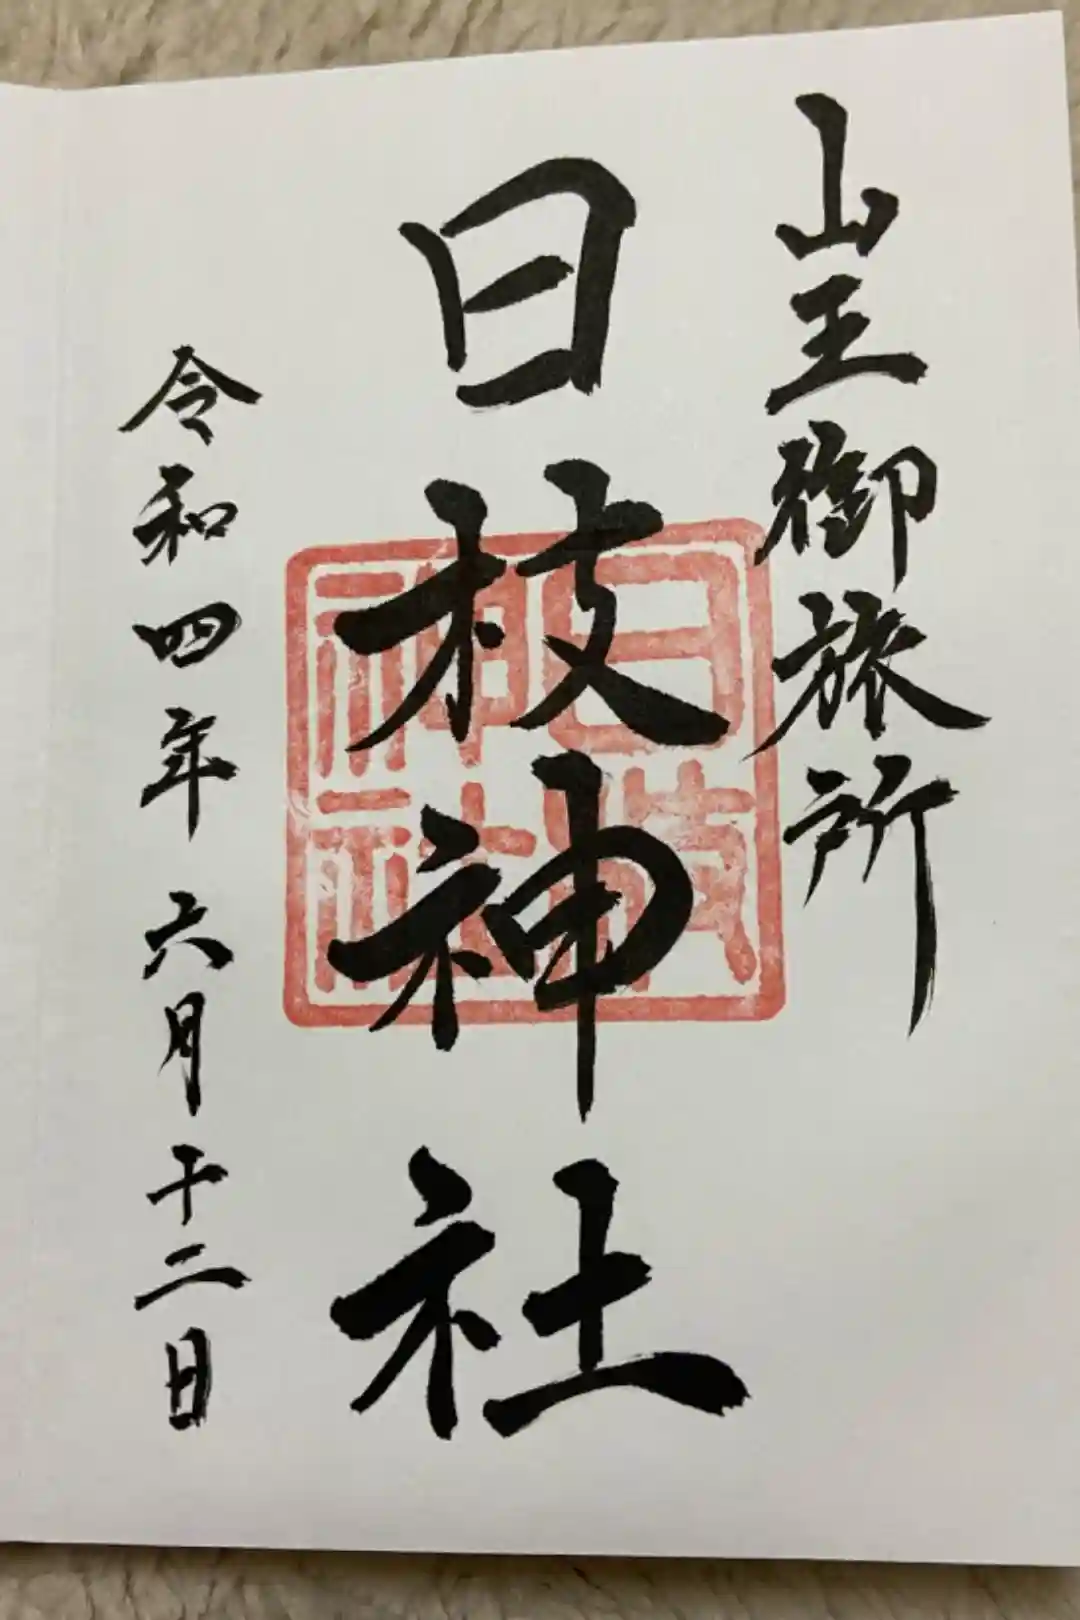 山王御旅所
日枝神社
日枝
神社
令和四年六月十二日